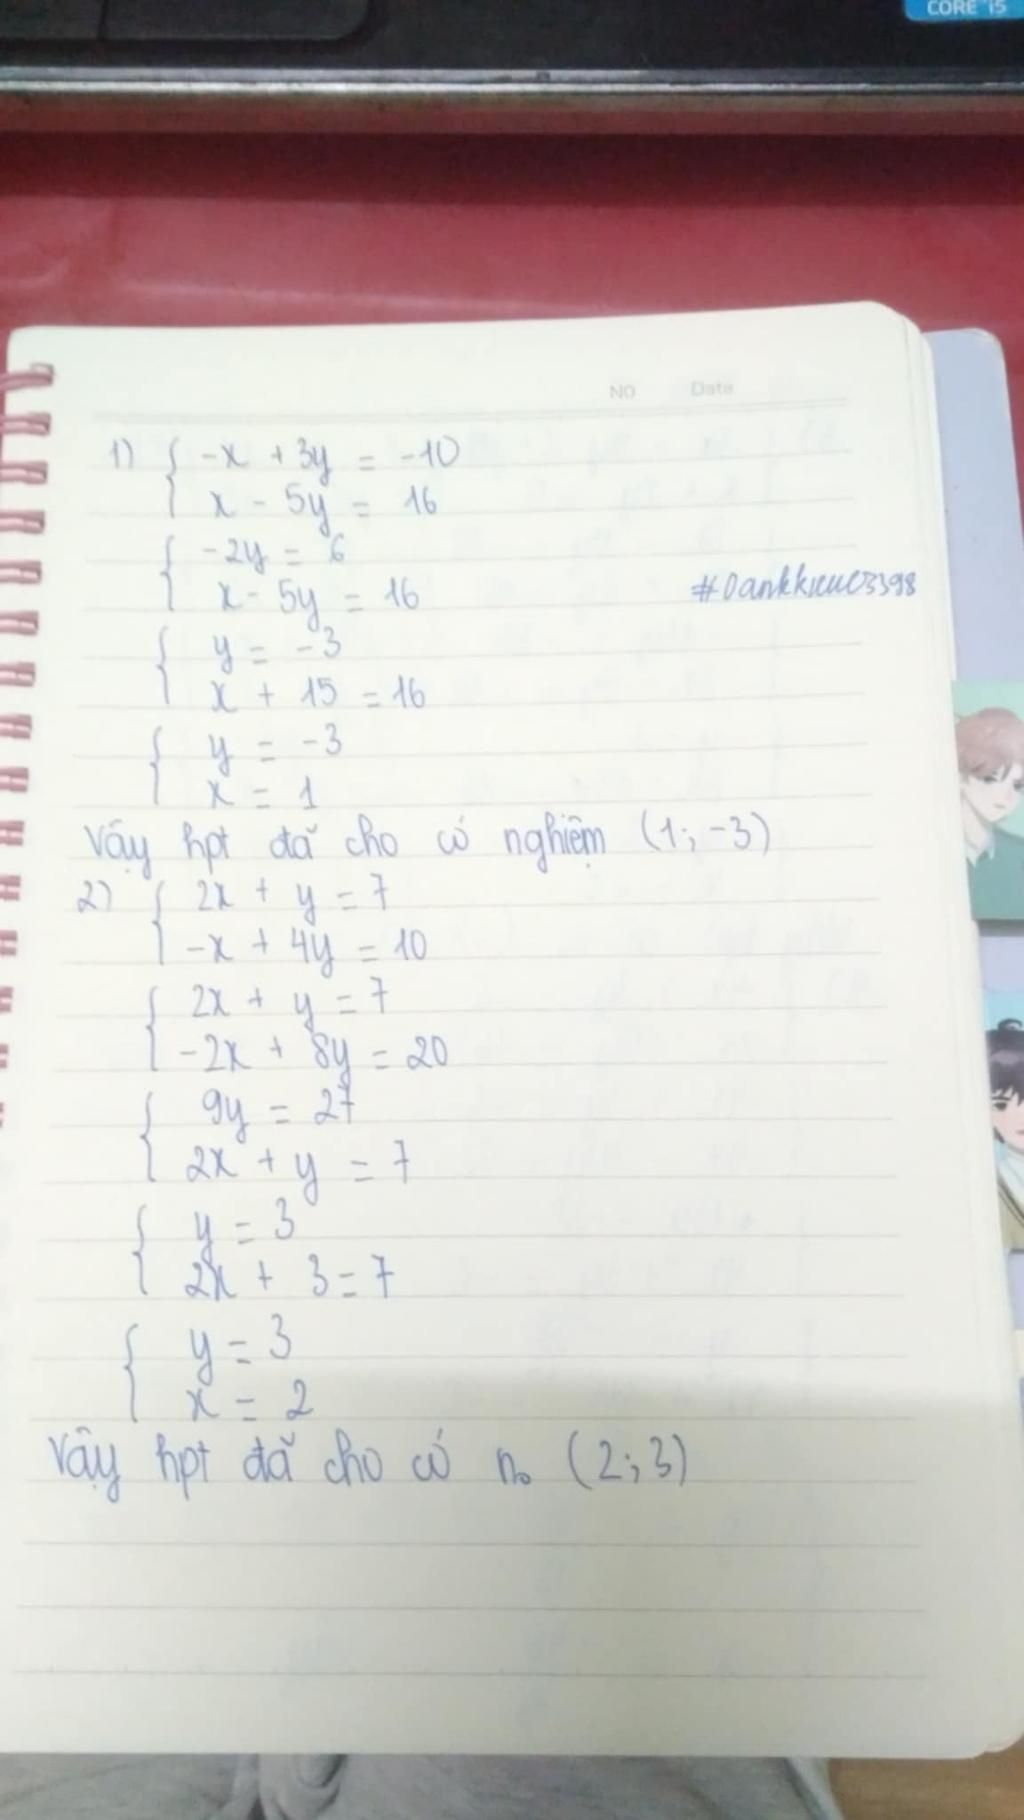 CORE i5
NO Date
1) { -x + 3y = -10
x - 5y = 16
{ -2y = 6
x - 5y = 16
{ y = -3
x + 15 = 16
{ y = -3
x = 1
Vậy hpt đã cho có nghiệm (1; -3)
2) { 2x + y = 7
-x + 4y = 10
{ 2x + y = 7
-2x + 8y = 20
{ 9y = 27
2x + y = 7
{ y = 3
2x + 3 = 7
{ y = 3
x = 2
Vậy hpt đã cho có no (2; 3)